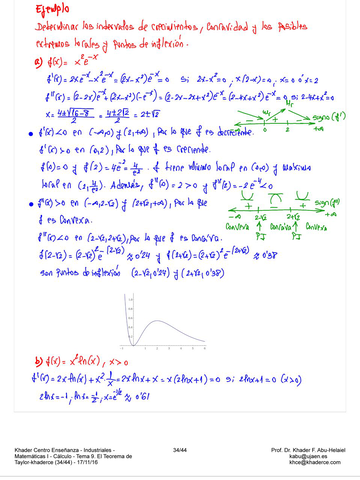 Ejemplo
Determinar los intervalos de crecimientos, concavidad y los posibles
extremos locales y puntos de inflexión.
a) f(x) = x²e^-x
f'(x) = 2xe^-x - x²e^-x = (2x-x²)e^-x = 0 si 2x-x²=0, x(2-x)=0, x=0 ó x=2
f''(x) = (2-2x)e^-x + (2x-x²)(-e^-x) = (2-2x-2x+x²)e^-x = (2-4x+x²)e^-x = 0 si 2-4x+x²=0
x = 4±√16-8 / 2 = 4±2√2 / 2 = 2±√2
sign(f')
- + -
-∞ 0 2 +∞
• f'(x)<0 en (-∞,0) y (2,+∞), por lo que f es decreciente.
f'(x)>0 en (0,2), por lo que f es creciente.
f(0)=0 y f(2)=4e^-2 = 4/e². f tiene mínimo local en (0,0) y máximo
local en (2, 4/e²). Además, f''(0)=2>0 y f''(2)=-2e^-2<0
• f''(x)>0 en (-∞,2-√2) y (2+√2,+∞), por lo que
f es convexa.
sign(f'')
+ - +
-∞ 2-√2 2+√2 +∞
Convexa ↑ Cóncava ↑ Convexa
P.I P.I
f''(x)<0 en (2-√2,2+√2), por lo que f es cóncava.
f(2-√2) = (2-√2)²e^-(2-√2) ≈ 0'24 y f(2+√2) = (2+√2)²e^-(2+√2) ≈ 0'38
son puntos de inflexión (2-√2,0'24) y (2+√2,0'38)
b) f(x) = x²ln(x), x>0
f'(x) = 2x ln(x) + x² 1/x = 2x lnx + x = x(2lnx+1) = 0 si 2lnx+1=0 (x>0)
2lnx=-1, lnx=-1/2, x=e^-1/2 ≈ 0'61
Khader Centro Enseñanza - Industriales -
Matemáticas I - Cálculo - Tema 9. El Teorema de
Taylor-khaderce (34/44) - 17/11/16
34/44
Prof. Dr. Khader F. Abu-Helaiel
kabu@ujaen.es
khce@khaderce.com